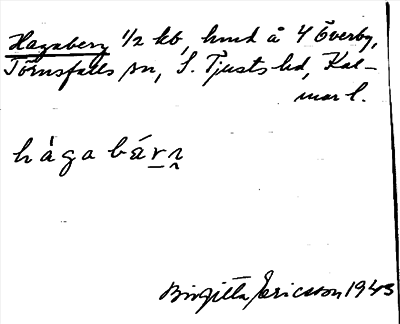 Hagaberg 1/2 kb, hmd å 4 Överby,
Törnsfalls sn, S. Tjusts hd, Kal-
mar l.
hàgabárɲ
Birgitta Ericsson 1943